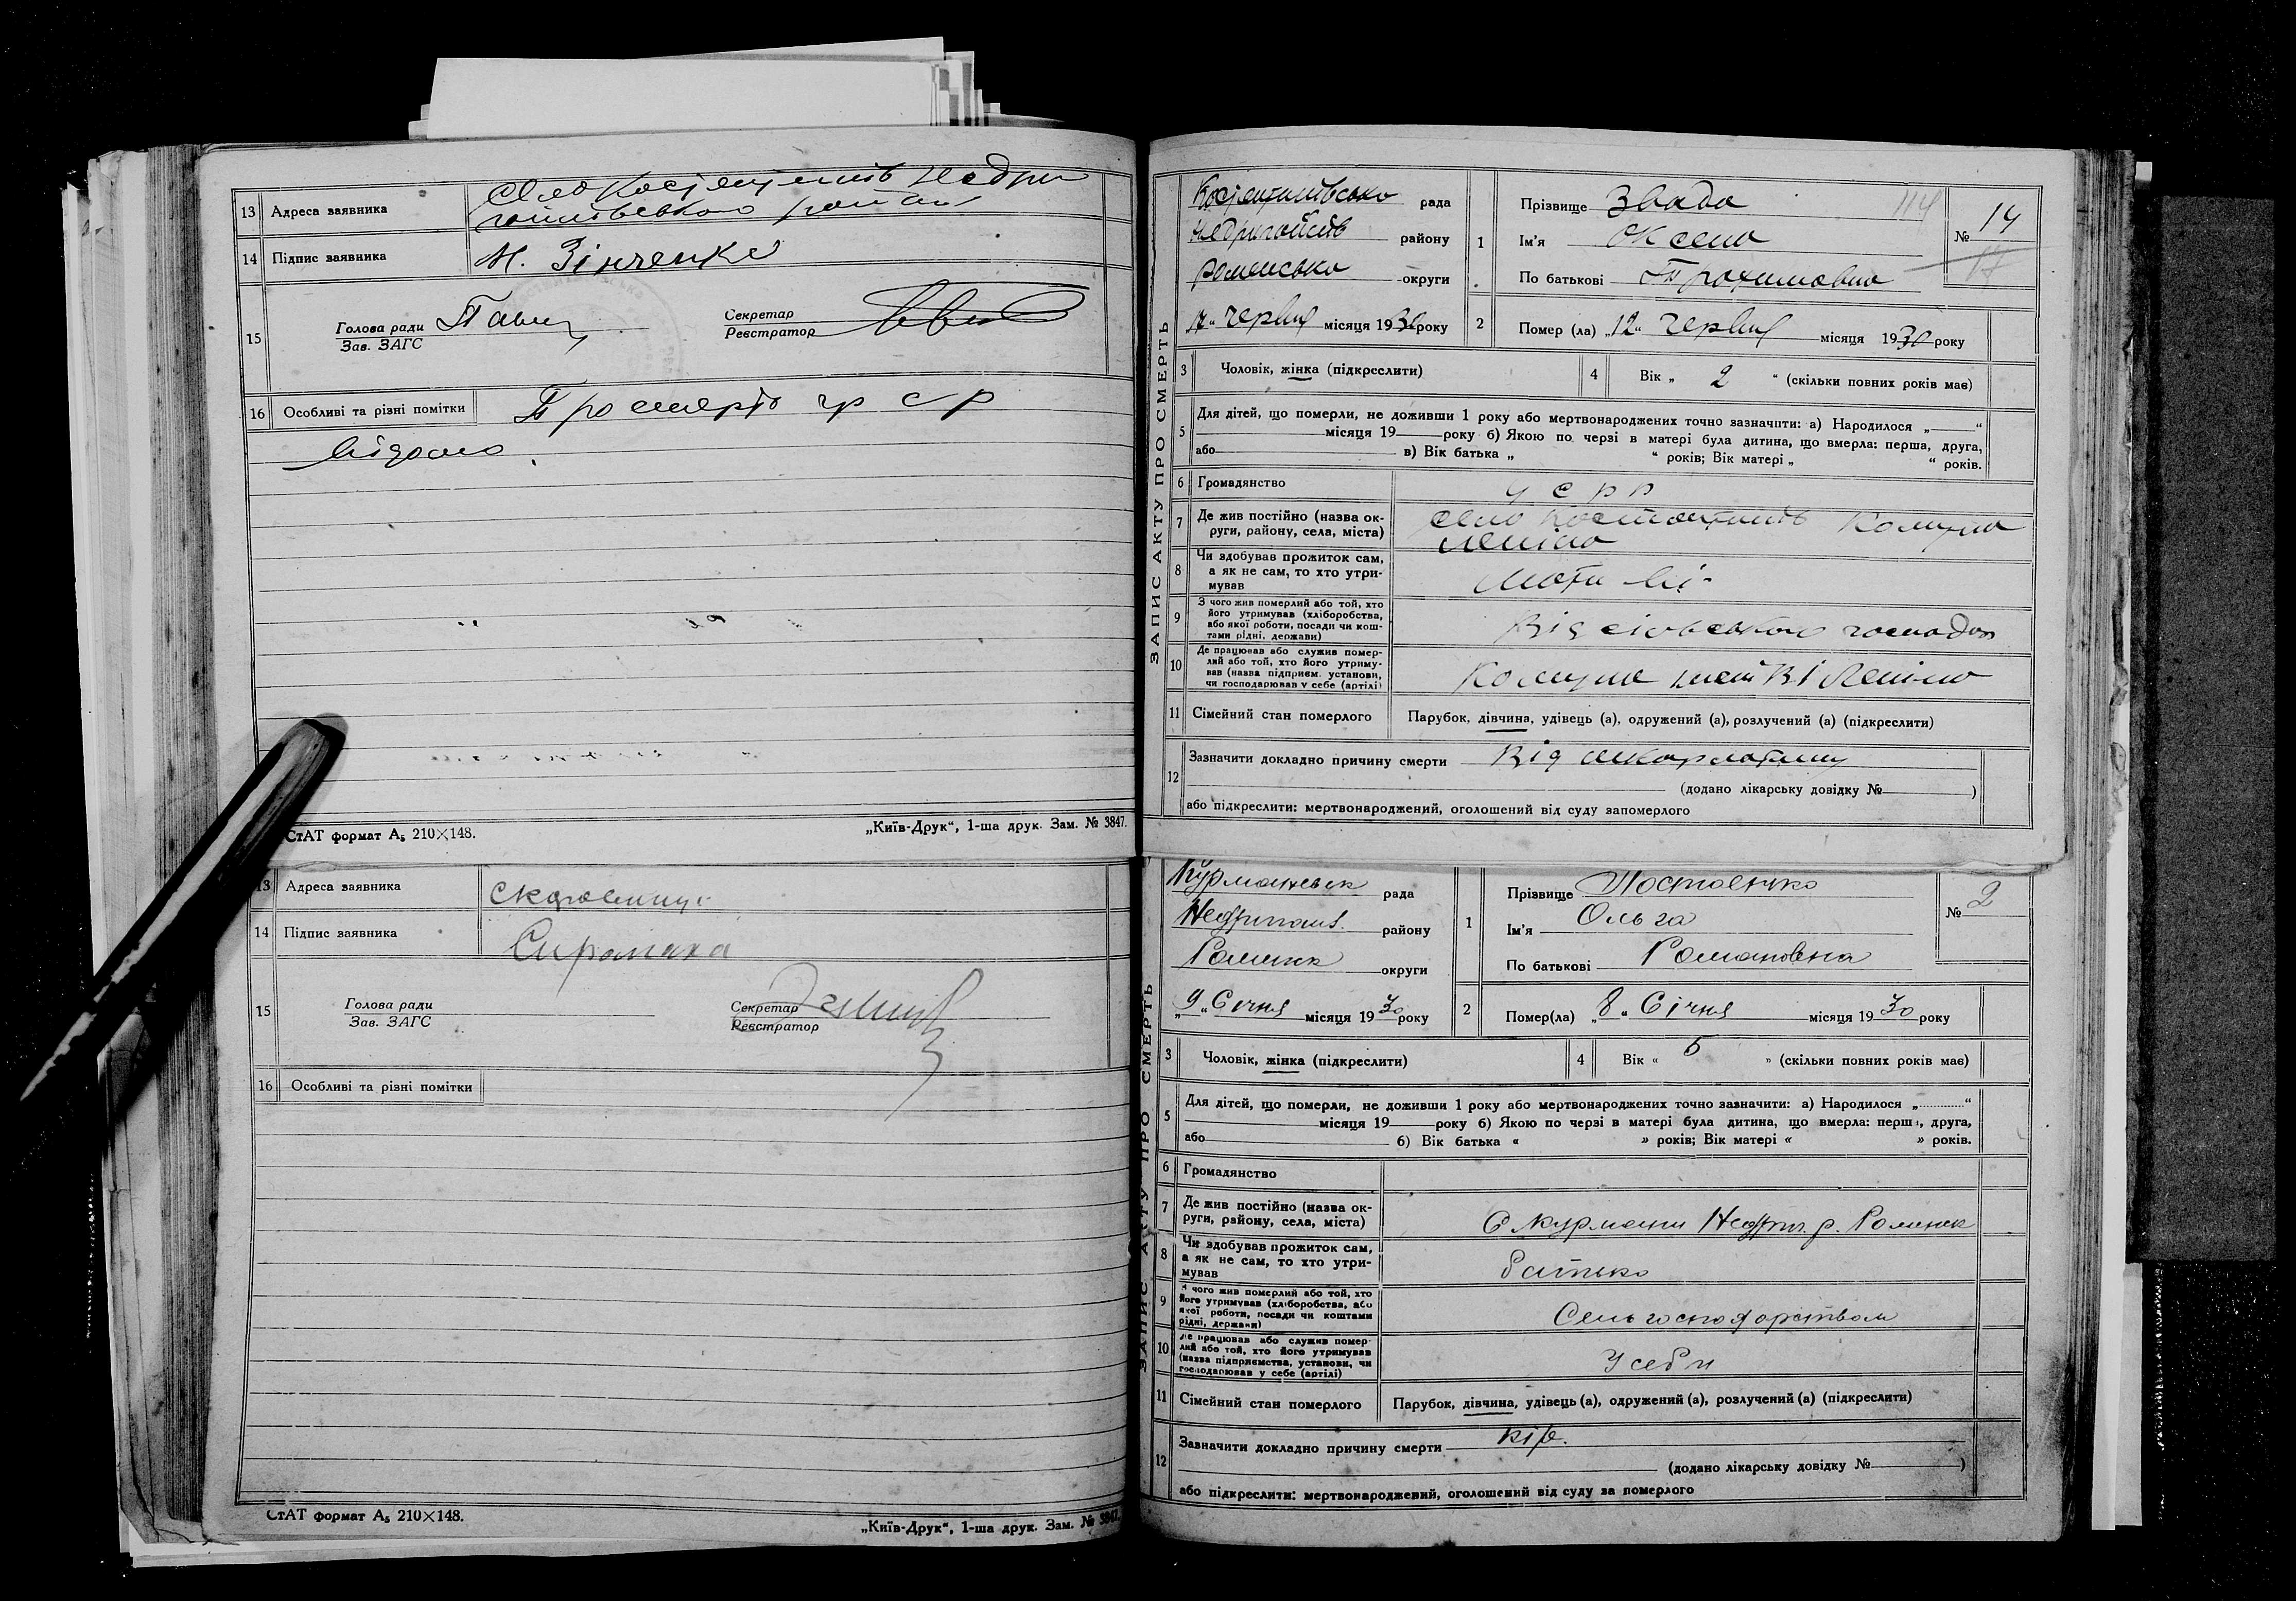 13 Адреса заявника село
14 Підпис заявника М. Зінченко
15
Голова ради
Зав. ЗАГС
Секретар
Реєстратор
16 Особливі та різні помітки Про смерть
відомо
СтАТ формат А₅ 210×148.
„Київ-Друк“, 1-ша друк. Зам. № 3847.
13 Адреса заявника
14 Підпис заявника Сиромаха
15
Голова ради
Зав. ЗАГС
Секретар
Реєстратор
16 Особливі та різні помітки
СтАТ формат А₅ 210×148.
„Київ-Друк“, 1-ша друк. Зам. № 3847.
ЗАПИС АКТУ ПРО СМЕРТЬ
рада
району
Роменська округи
червня місяця 1930 року
1 Прізвище Звада
Ім'я Оксена
По батькові Трохимовна
114
№ 14
17
2 Помер (ла) „12“ червня місяця 1930 року
3 Чоловік, жінка (підкреслити)
4 Вік „ 2 “ (скільки повних років має)
5 Для дітей, що померли, не доживши 1 року або мертвонароджених точно зазначити: а) Народилося „ “
місяця 19 року б) Якою по черзі в матері була дитина, що вмерла: перша, друга,
або в) Вік батька „ “ років; Вік матері „ “ років.
6 Громадянство УСРР
7 Де жив постійно (назва округи, району, села, міста) село Комуна
Леніна
8 Чи здобував прожиток сам,
а як не сам, то хто утримував Мати
9 З чого жив померлий або той, хто
його утримував (хліборобства,
або якої роботи, посади чи коштами рідні, держави) Від
10 Де працював або служив померлий або той, хто його утримував (назва підприєм. установи,
чи господарював у себе (артілі) Комуна імені Леніна
11 Сімейний стан померлого Парубок, дівчина, удівець (а), одружений (а), розлучений (а) (підкреслити)
12 Зазначити докладно причину смерти Від шкарлатини
(додано лікарську довідку № )
або підкреслити: мертвонароджений, оголошений від суду запомерлого
ЗАПИС АКТУ ПРО СМЕРТЬ
рада
району
округи
„9“ Січня місяця 1930 року
1 Прізвище
Ім'я Ольга
По батькові Романовна
№ 2
2 Помер(ла) „8“ Січня місяця 1930 року
3 Чоловік, жінка (підкреслити)
4 Вік « 5 » (скільки повних років має)
5 Для дітей, що померли, не доживши 1 року або мертвонароджених точно зазначити: а) Народилося „ “
місяця 19 року б) Якою по черзі в матері була дитина, що вмерла: перша, друга,
або б) Вік батька « » років; Вік матері « » років.
6 Громадянство
7 Де жив постійно (назва округи, району, села, міста) С Курмани
8 Чи здобував прожиток сам,
а як не сам, то хто утримував батько
9 З чого жив померлий або той, хто
його утримував (хліборобства, або
якої роботи, посади чи коштами
рідні, держави)
10 Де працював або служив померлий або той, хто його утримував
(назва підприємства, установи, чи
господарював у себе (артілі) У себе
11 Сімейний стан померлого Парубок, дівчина, удівець (а), одружений (а), розлучений (а) (підкреслити)
12 Зазначити докладно причину смерти кір.
(додано лікарську довідку № )
або підкреслити: мертвонароджений, оголошений від суду за померлого